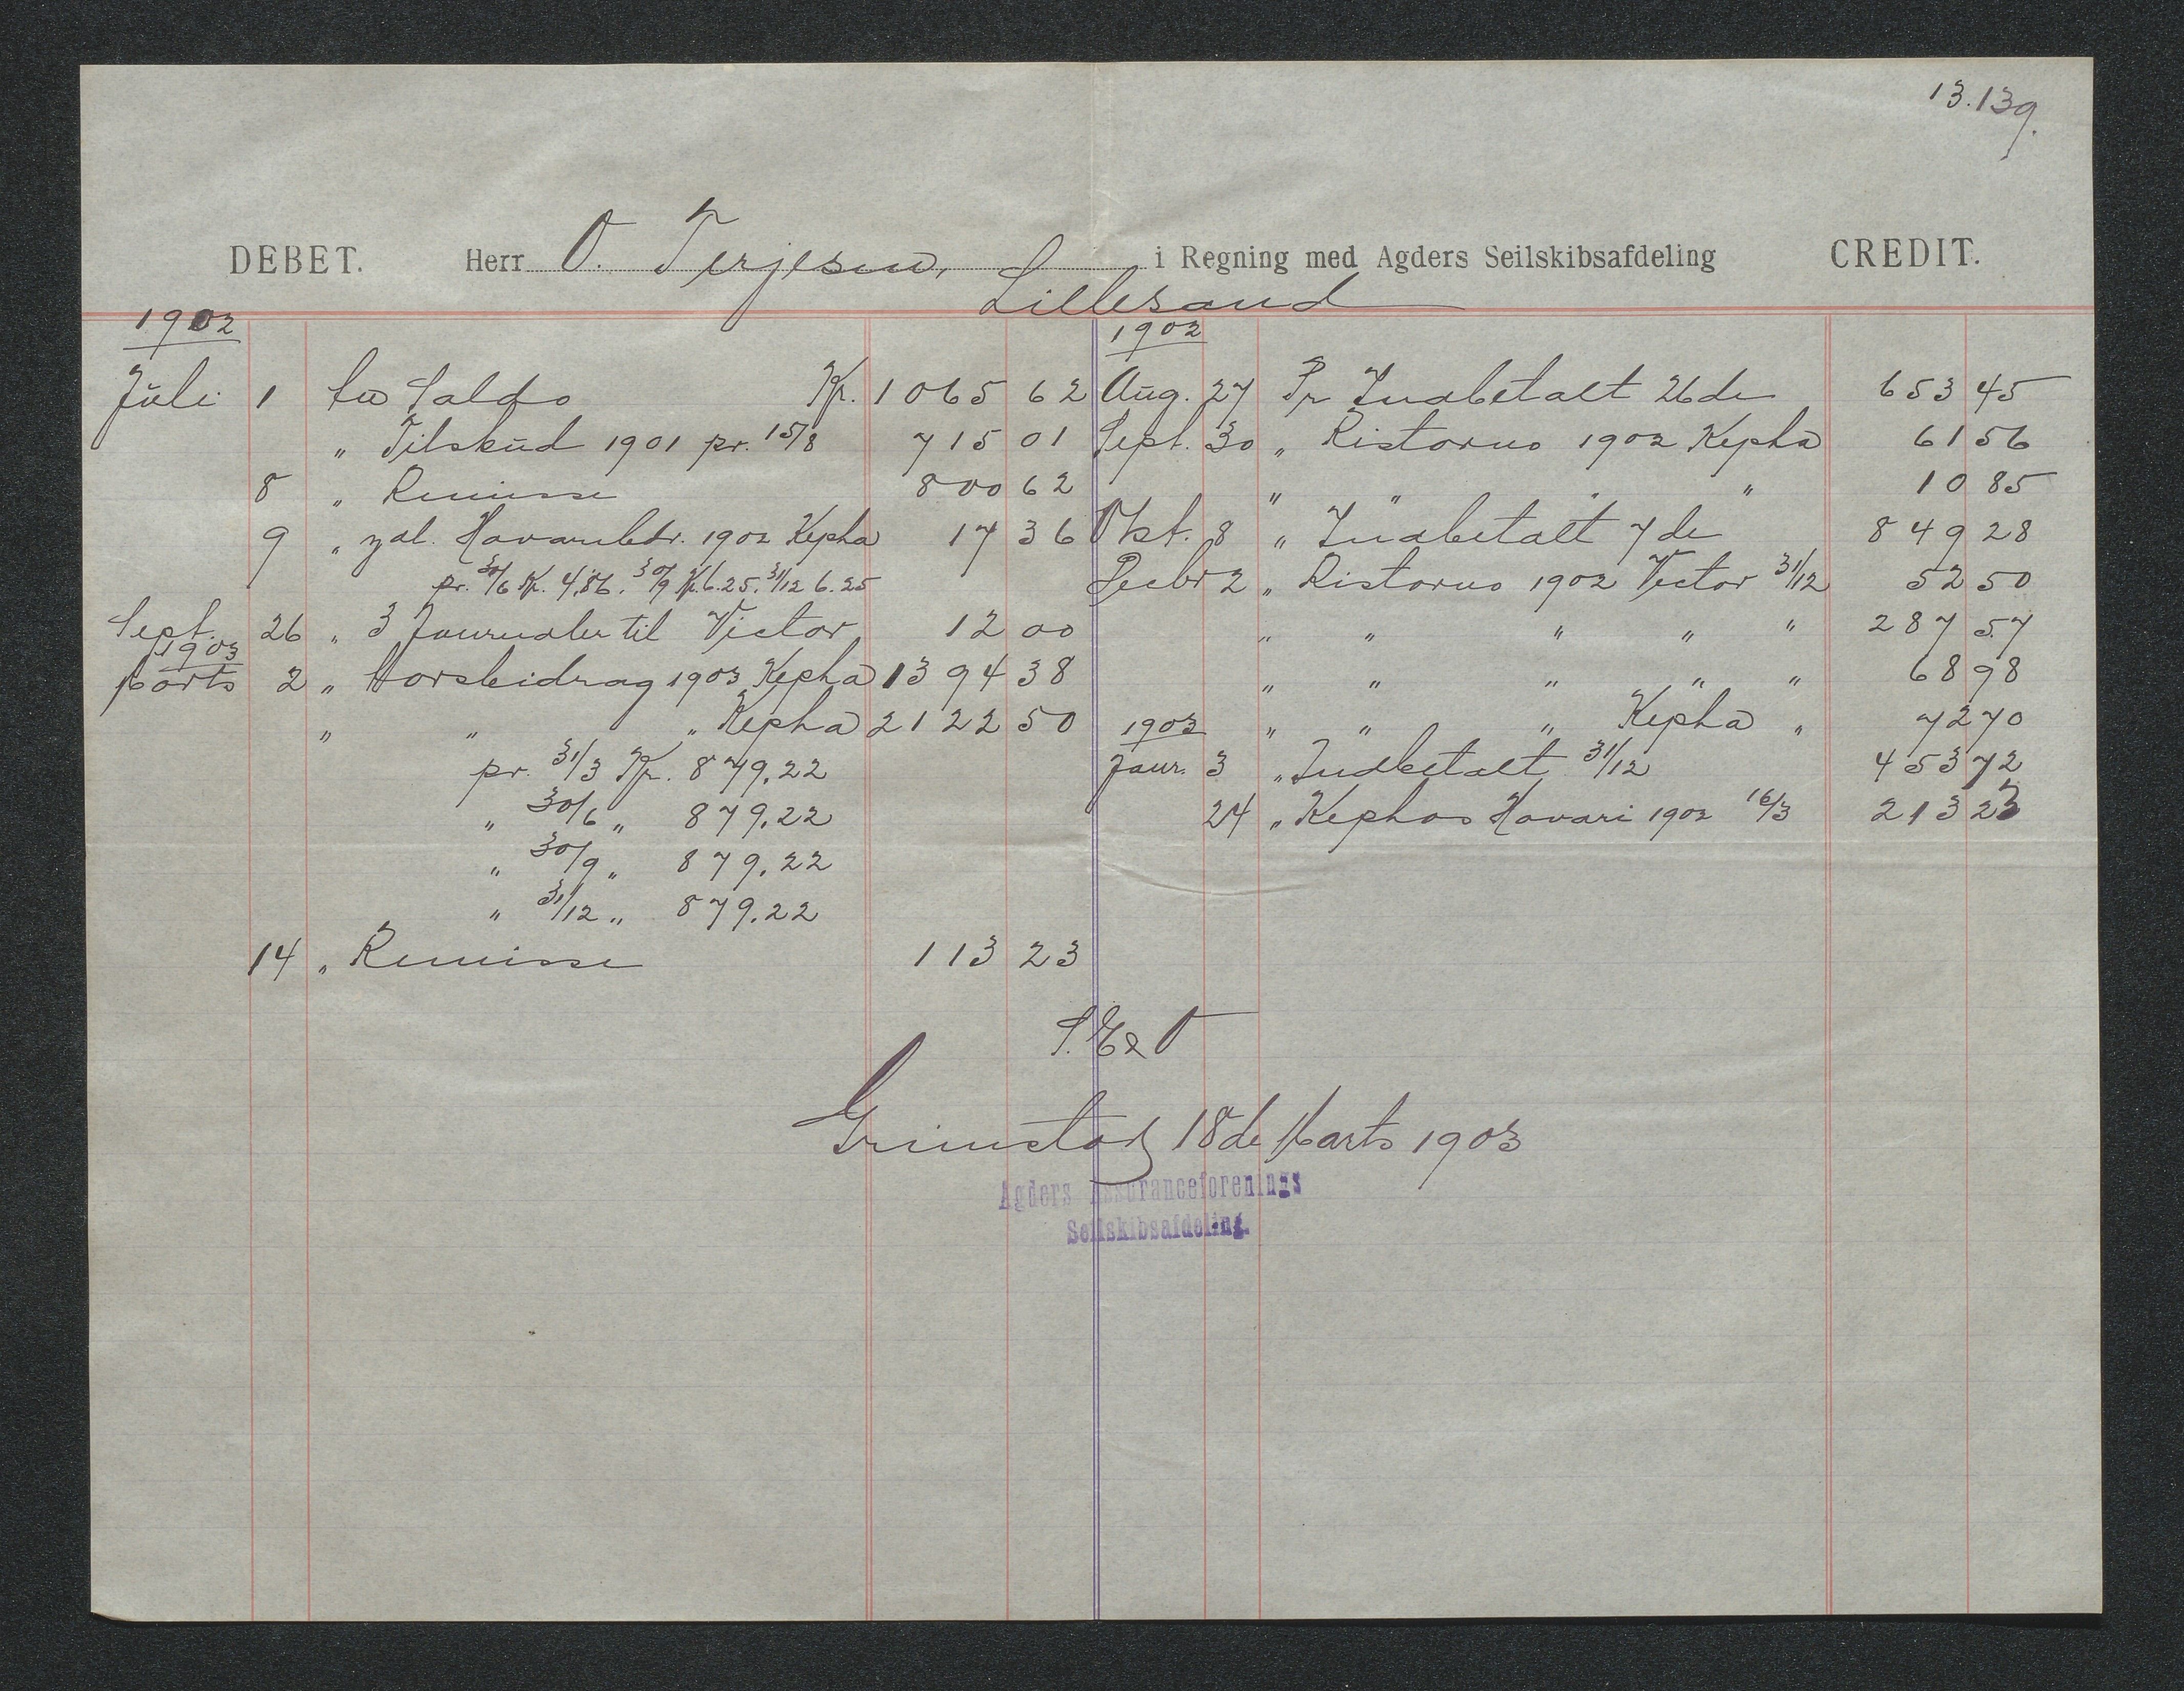 13.139.
DEBET. Herr O. Terjesen, i Regning med Agders Seilskibsafdeling CREDIT.
Lillesand
1902
Juli 1 Saldo Kr. 1065 62
" Tilskud 1901 pr. 15/8 715 01
8 " Remisse 800 62
9 " Havaribdr. 1902 Kepha 17 36
pr. 30/6 Kr. 4,86. 30/9 Kr. 6.25. 31/12 6.25
Sept. 26 " 3 Journaler til Victor 12 00
1903
Marts 2 " Forsbidrag 1903 Kepha 1394 38
" " " Kepha 2122 50
pr. 31/3 Kr. 879.22
" 30/6 " 879.22
" 30/9 " 879.22
" 31/12 " 879.22
14 " Remisse 113 23
1902
Aug. 27 Pr Indbetalt 26de 653 45
Sept. 30 " Ristorno 1902 Kepha 61 56
" " " " 10 85
Okt. 8 " Indbetalt 7de 849 28
Decbr 2 " Ristorno 1902 Victor 31/12 52 50
" " " " " 287 57
" " " " " 68 98
1903 " " " Kepha " 72 70
Janr. 3 " Indbetalt 31/12 453 72
24 " Kephas Havari 1902 16/3 213 23
S. E & O
Grimstad 18de Marts 1903
Agders Assuranceforenings
Seilskibsafdeling.